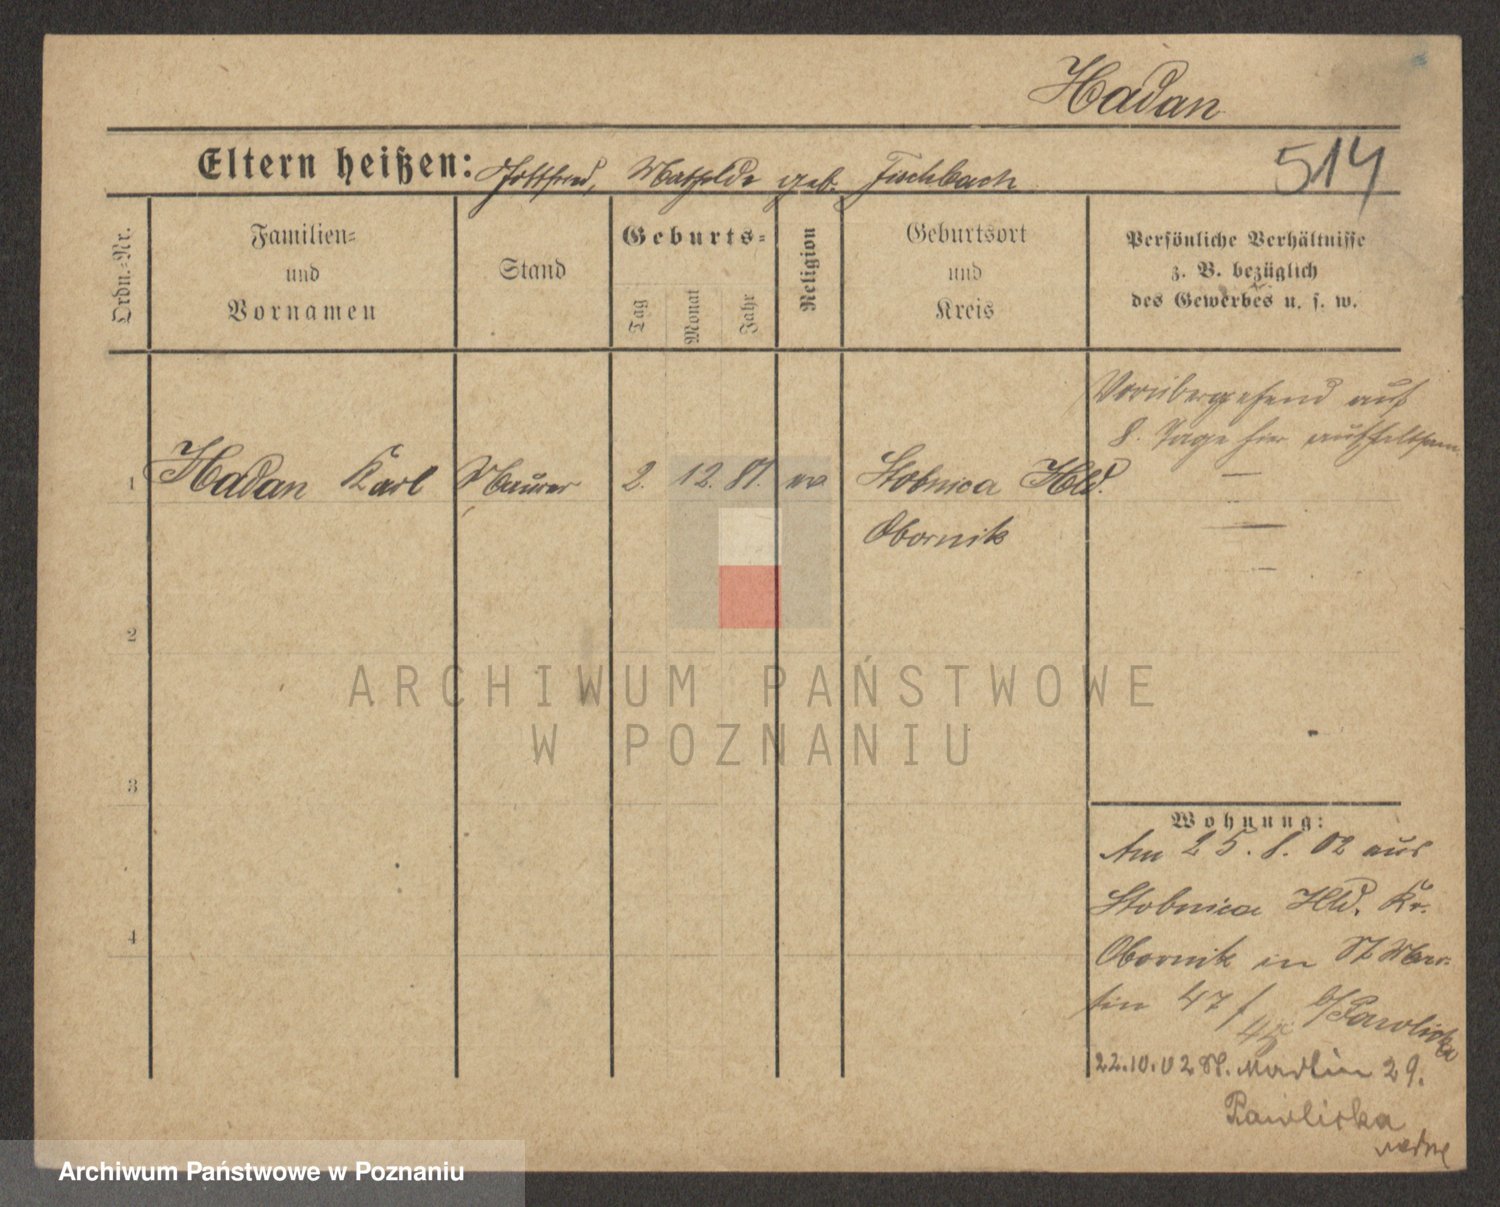 Hadan
Eltern heißen: Gottfried, Mathilde geb. Fischbach
514
Ordn.-Nr.
Familien-
und
Vornamen
Stand
Geburts-
Tag
Monat
Jahr
Religion
Geburtsort
und
Kreis
Persönliche Verhältnisse
z. B. bezüglich
des Gewerbes u. s. w.
Vorübergehend auf
8. Tage hier aufhaltsam
1 Hadan Karl Maurer 2. 12. 81. ev Stobnica Hld.
Obornik
2
3
4
Wohnung:
Am 25. 8. 02 aus
Stobnica Hld. Kr.
Obornik in St Mar-
tin 47 b/Pawlicka
45
22.10.02 St. Martin 29.
Pawlicka
ARCHIWUM PAŃSTWOWE
W POZNANIU
Archiwum Państwowe w Poznaniu